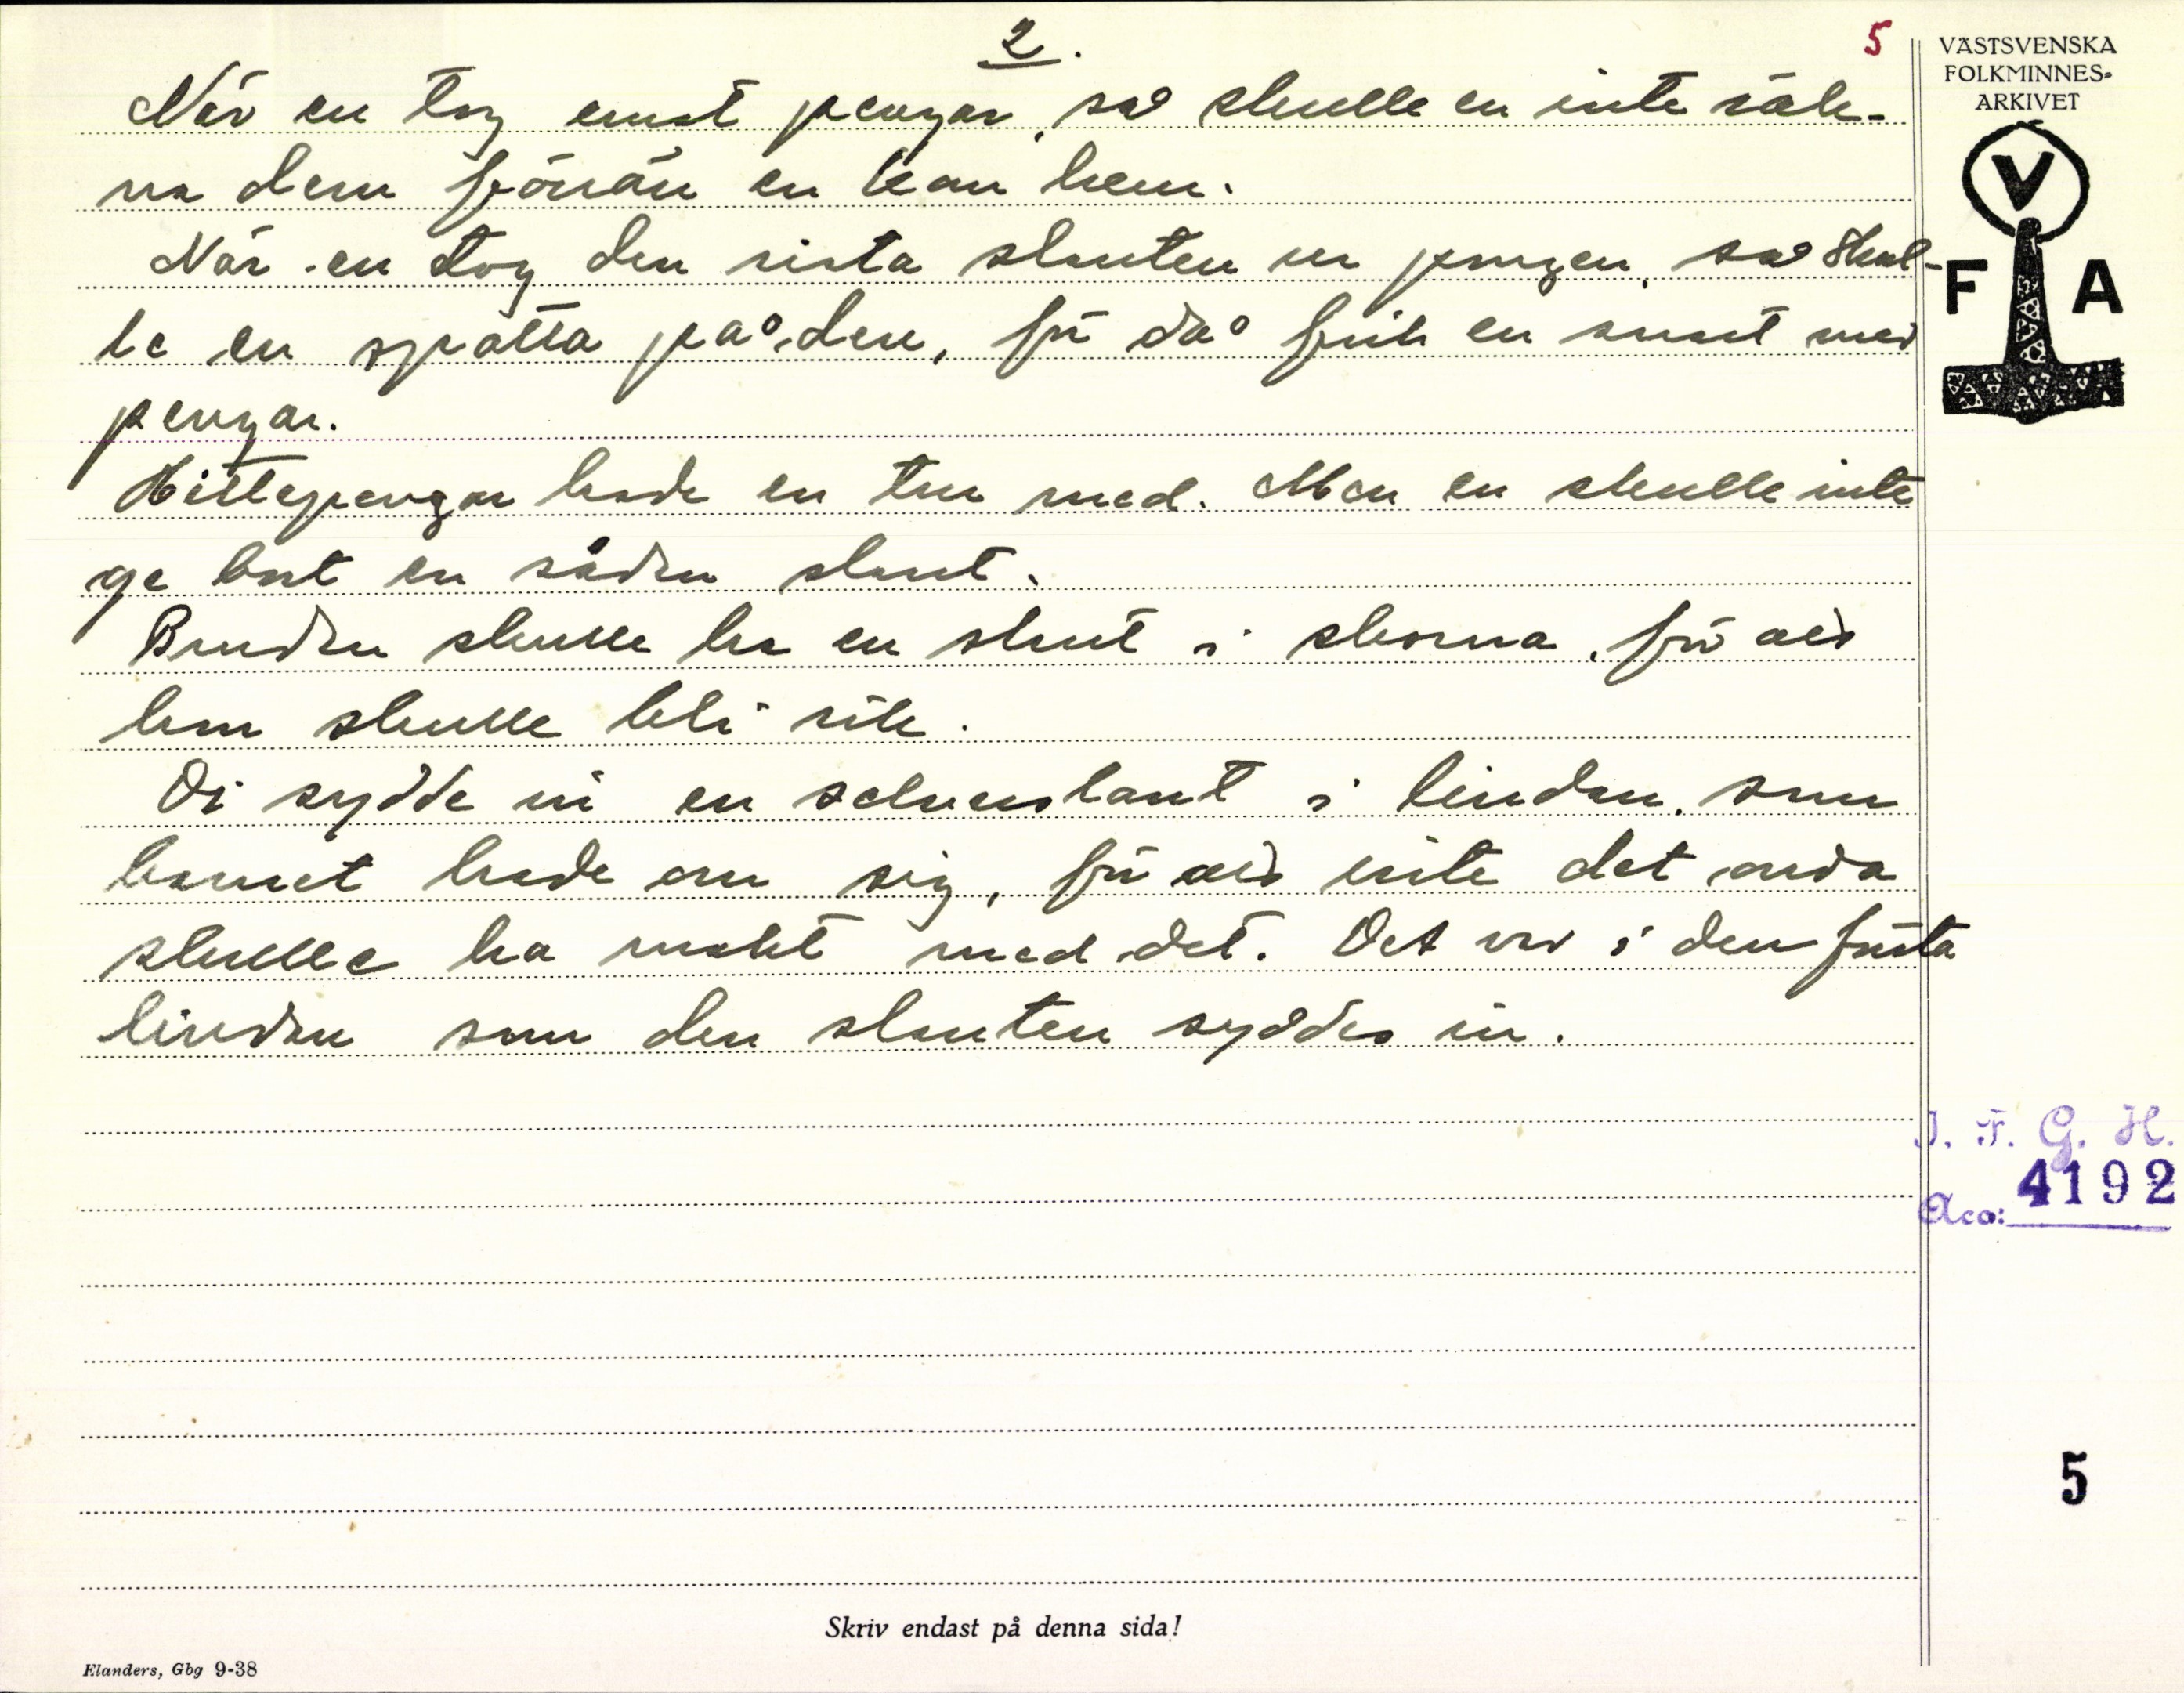 2.
5
När en tog emot pengar, så skulle en inte räk-
na dem förrän en kom hem.
När en tog den sista slanten ur pungen, så skul-
le en spotta på den, för då fick en snart med
pengar.
Hittepengar hade en tur med. Men en skulle inte
ge bort en sådan slant.
Bruden skulle ha en slant i skorna, för att
hon skulle bli rik.
Di sydde in en selverslant i lindan, som
barnet hade om sig, för att inte det onda
skulle ha makt med det. Det var i den första
lindan som den slanten syddes in.
VÄSTSVENSKA
FOLKMINNES-
ARKIVET
V
F A
I. F. G. H.
Acc: 4192
5
Skriv endast på denna sida!
Elanders, Gbg 9-38